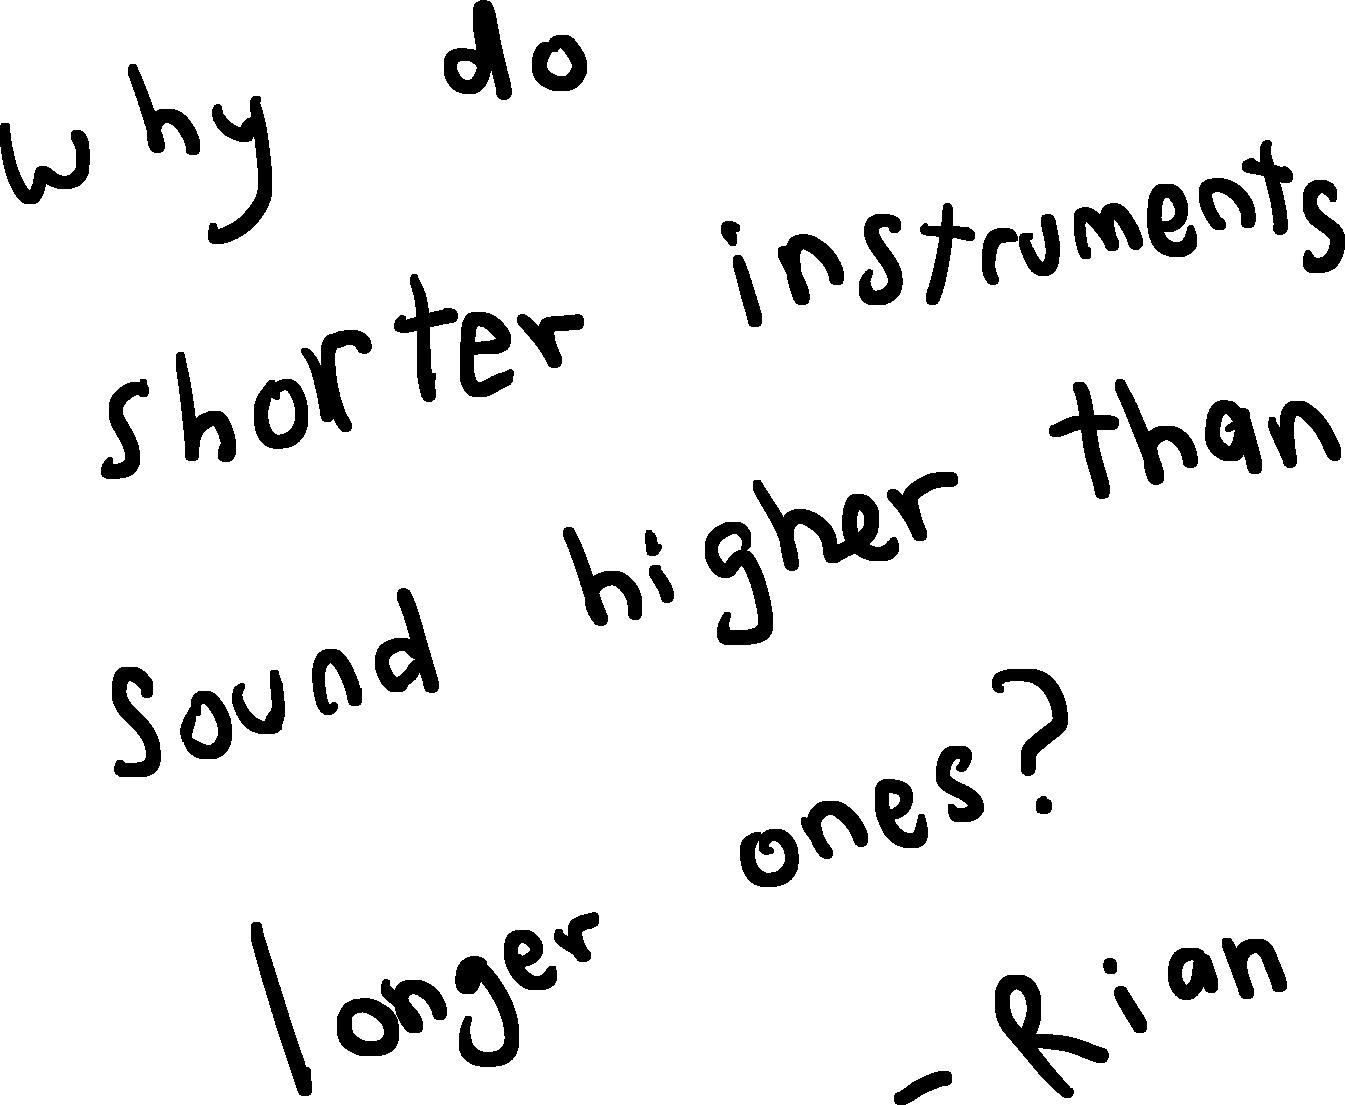 why do
shorter instruments
sound higher than
longer ones?
- Rian